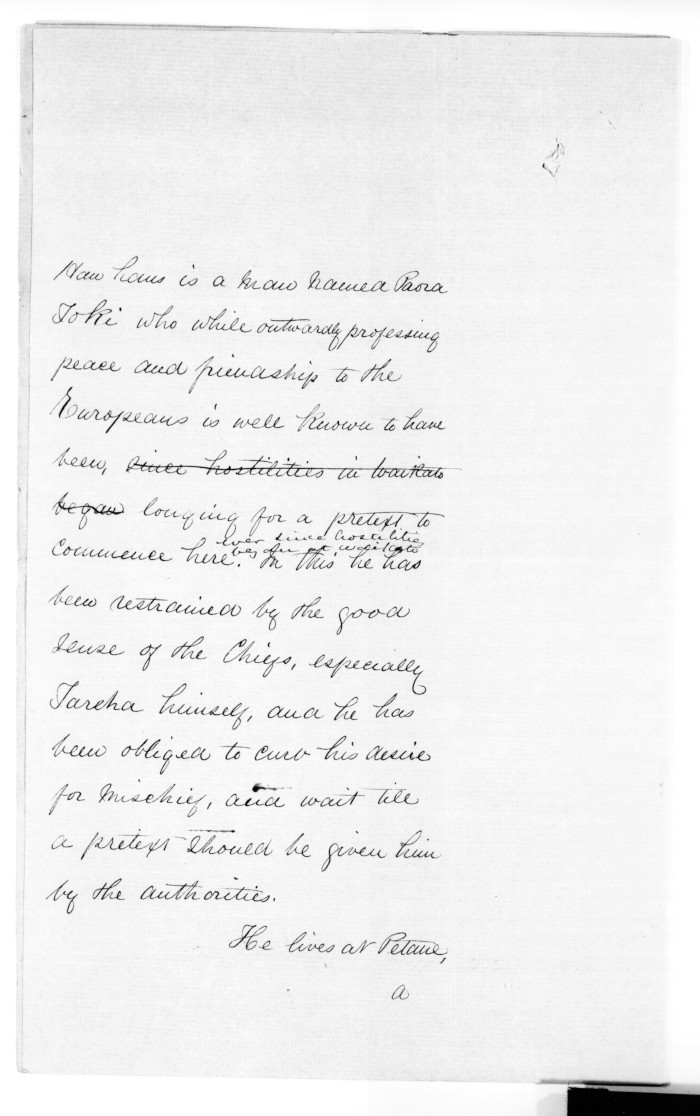 Hau haus is a man named Paora
Toki who while outwardly professing
peace and friendship to the
Europeans is well known to have
been, since hostilities in Waikato
began longing for a pretext to
ever since hostilities
began at Waikato
commence here. In this he has
been restrained by the good
sense of the Chiefs, especially
Tareha himself, and he has
been obliged to curb his desire
for mischief, and wait till
a pretext should be given him
by the authorities.
He lives at Petane,
a